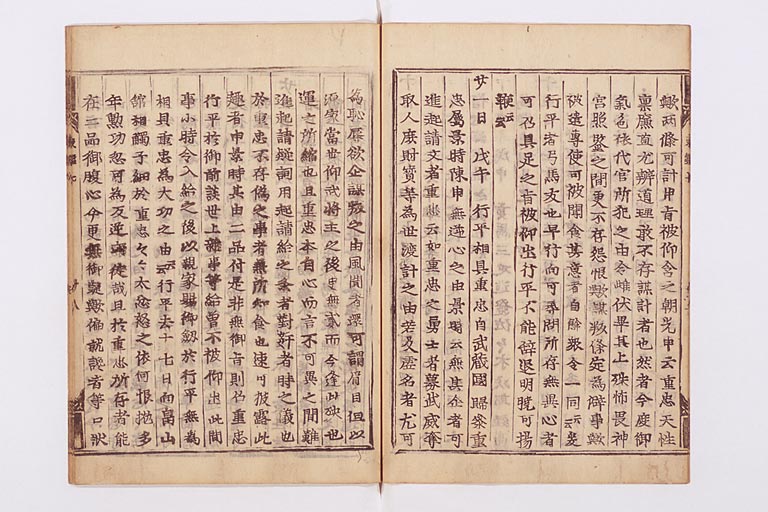 歟両條可計申旨被仰含之朝光申云重忠天性
禀廉直尤辨道理敢不存謀計者也然者今度御
氣色依代官所犯之由令雌伏畢其上殊怖畏神
宮照鑒之間更不存怨恨歟謀叛條定為僻事歟
被遣專使可被聞食其意者自餘衆令一同云々爰
行平者弓馬友也早行向可尋問所存無異心者
可召具足之旨被仰出行平不能辞退明暁可揚
鞭云々
廿一日 戊午 行平相具重忠自武蔵國帰参重
忠属景時陳申無逆心之由景時云無其企者可
進起請文者重忠云如重忠之勇士者募武威奪
取人庶財寶等為世渡計之由若及虚名者尤可
為恥辱欲企謀叛之由風聞者還可謂眉目但以
源家當世仰武将主之後更無貳而今逢此殃也
運之所縮也且重忠本自心而言不可異之間難
進起請疑詞用起請給之条者對奸者時之儀也
於重忠不存偽之事者兼所知食也速可披露此
趣者申景時其由二品付是非無御旨則召重忠
行平於御前談世上雑事等給曽不被仰出此間
事小時令入給之後以親家賜御釼於行平無為
相具重忠為大功之由云々行平去十七日向畠山
舘相觸子細於重忠々々太忿怒之依何恨抛多
年勲功忽可為反逆凶徒哉且於重忠所存者能
在二品御腹心今更無御疑歟偏就讒者等口状